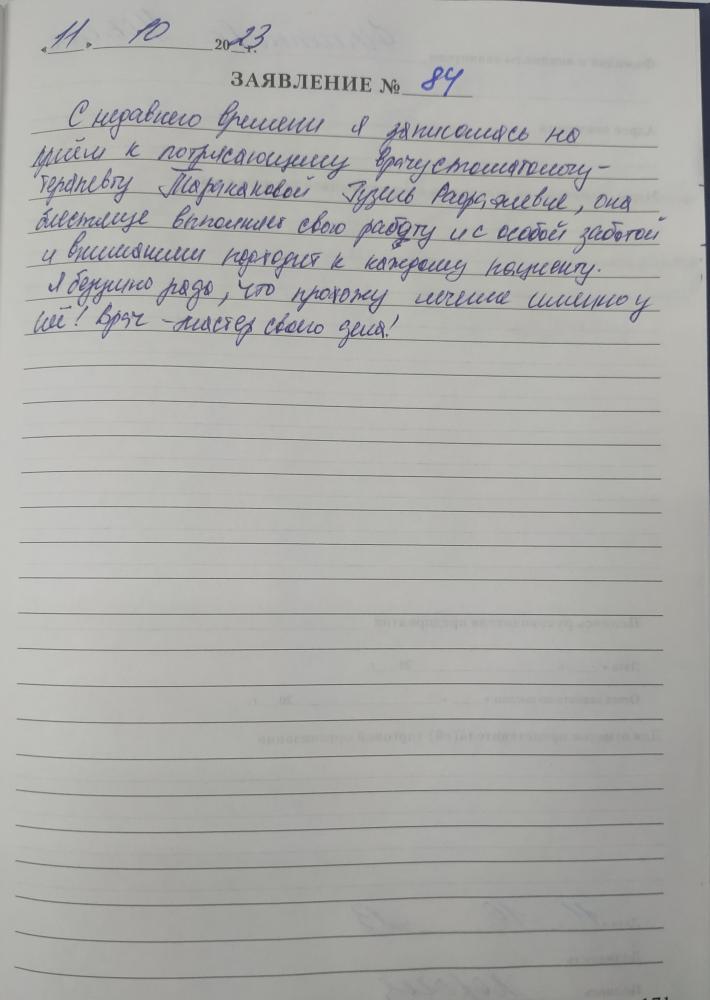 « 11 » 10 2023 г.
ЗАЯВЛЕНИЕ № 84
С недавнего времени я записалась на
приём к потрясающему врачустоматологу-
терапевту Таракановой Гузель , она
блестяще выполняет свою работу и с особой заботой
и вниманием подходит к каждому пациенту.
Я безумно рада, что прохожу лечение именно у
неё! Врач - мастер своего дела!
Подпись руководителя предприятия